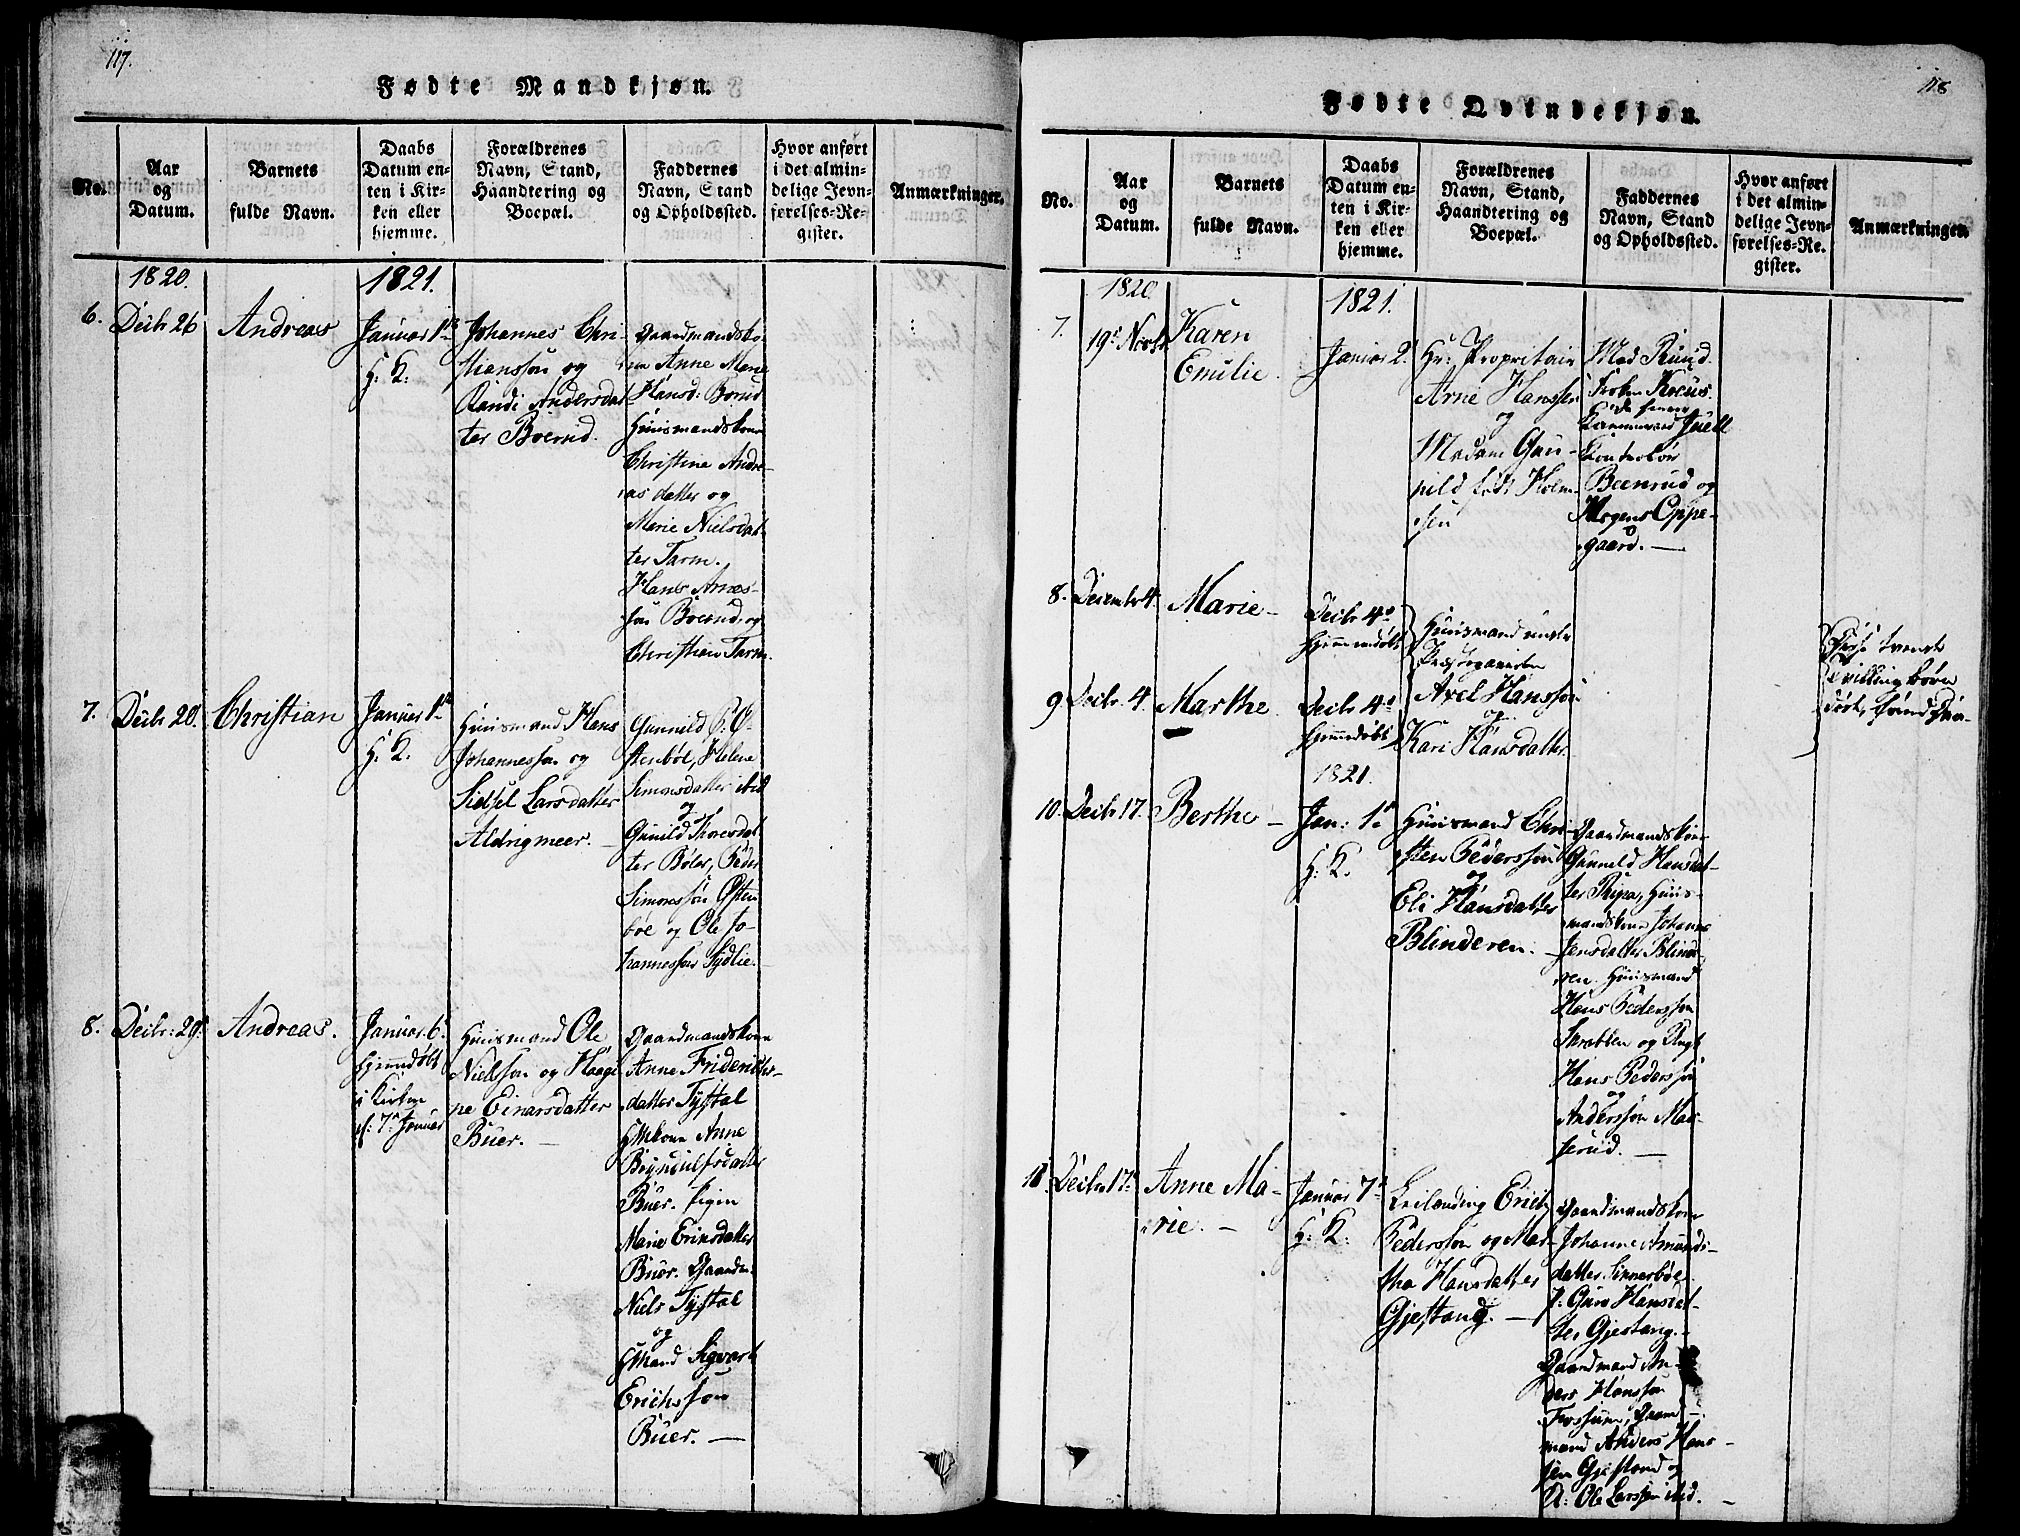 117.
Fødte Mandkjøn.
No.
Aar
og
Datum.
Barnets
fulde Navn.
Daabs
Datum en-
ten i Kir-
ken eller
hjemme.
Forældrenes
Navn, Stand,
Haandtering og
Boepæl.
Faddernes
Navn, Stand
og Opholdssted.
Hvor anført
i det almin-
delige Jevn-
førelses-Re-
gister.
Anmærkninger.
1820.
1821.
6.
Decbr 26
Andreas
Januar 1te
H: K.
Johannes Chri-
stiansson og
Randi Andersdat
ter Boerud.
Gaardmandsko-
ne Anne Marie
Hansd: Borud
Huusmandskone
Christine Andre-
as datter og
Marie Nielsdat-
ter Tarm.
Hans Arnes-
søn Boerud, og
Christian Tarm.
7.
Decbr 20.
Christian
Januar 1te
H: K.
Huusmand Hans
Johannessøn og
Sidsel Larsdatter
Aldrigmeer.
Gunnild P: Ø-
stenbøe, Helene
Simonsdatter ibid
og
Gunild Thoresdat
ter Bøler, Peder
Simonssøn Østen
bøe og Ole Jo-
hannessøn Sydlie.
8.
Decbr: 29.
Andreas.
Januar 6.
hjemmedøbt
i Kirken
d: 7de Januar
Huusmand Ole
Nielssøn og Haagi
ne Einarsdatter
Buer.
Gaardmandskone
Anne Friderichs-
datter Tystal
HMkone Anne
Buer. Pigen
Marie Erichsdatter
Buer. Gaardm.
Niels Tystal
og
HMand Sigvart
Erichssøn
Buer.
118
Fødte Qvindekjøn.
No.
Aar
og
Datum.
Barnets
fulde Navn.
Daabs
Datum en-
ten i Kir-
ken eller
hjemme.
Forældrenes
Navn, Stand,
Haandtering og
Boepæl.
Faddernes
Navn, Stand
og Opholdssted.
Hvor anført
i det almin-
delige Jevn-
førelses-Re-
gister.
Anmærkninger.
1820.
1821.
7.
19de Novbr
Karen
Emilie.
Januar 2.
Hr: Propritair
Arne Hanssen
og
Madam Gun-
hild født Holm-
sen
Mad Ruud.
Juell
Beenrud og
Mogens Oppe-
gaard.
8.
December 4.
Marie
Decbr 4de
hjemmedøbt
Huusmand under
Axel Hanssøn
og
Kari Hansdatter.
9
Decbr. 4.
Marthe
Decbr 4de
hjemmedøbt
Disse tvende
Tvillingbørn
1821.
10.
Decbr 17.
Berthe
Jan: 1te
H: K.
Huusmand Chri-
sten Pederssøn
og
Eli Hansdatter
Blinderen.
Gaardmandskone
Gunnild Hansdat-
ter Ripa, Huus-
mandskone Johanne
Jensdatter Blinde-
ren. Huusmand
Hans Pederssøn
Skrabben og Ungk
Hans Pederssøn
og
Anderssøn Mas-
serud.
11
Decbr 17.
Anne Ma-
rie.
Januar 7de
H: K.
Leilænding Erich
Pederssøn og Mar-
tha Hansdatter
Gjestang.
Gaardmandskone
Johanne Amunds-
datter Sinnerbøl
P: Guro Hansdat-
ter Gjestang.
Gaardmand An-
ders Hanssøn
Fossum, Gaard-
mand Anders Hans-
søn Gjestang og
U: Ole Larssøn ibid.